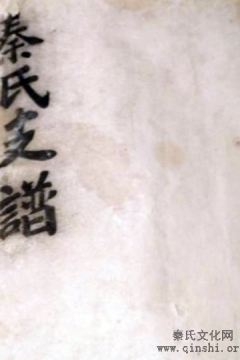 秦氏支譜
秦氏文化网
www.qinshi.or